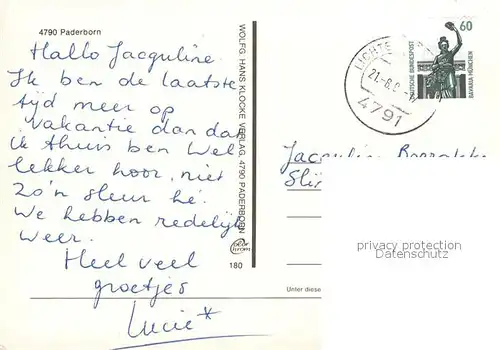 4790 Paderborn
Hallo Jacquline
Ik ben de laatste
tijd meer op
vakantie dan dat
ik thuis ben Wel
lekker hoor, niet
zo'n sleur hè.
We hebben redelijk
weer.
Heel veel
groetjes
Lucie*
WOLFG. HANS KLOCKE VERLAG 4790 PADERBORN
180
60
DEUTSCHE BUNDESPOST
BAVARIA MÜNCHEN
LICHTE
21.-8.
4791
Jacqulin
privacy protection
Datenschutz
Unter diese